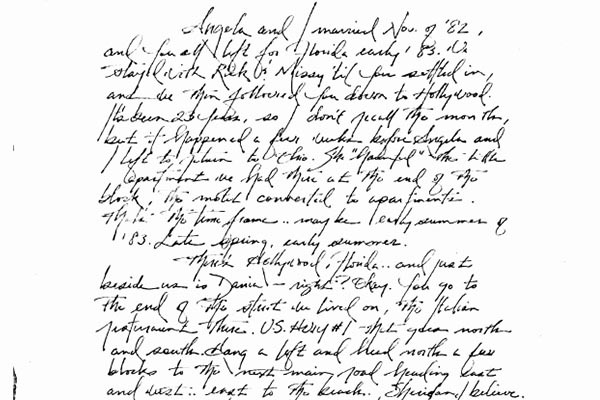 Angela and I married Nov. of '82,
and you all left for Florida early '83. We
stayed with Rick & Missy 'til you settled in,
and we then followed you down to Hollywood.
It's been 20 years, so I don't recall the month,
but it happened a few weeks before Angela and
I left to return to Ohio. The "Harmful" the little
apartment we had there at the end of the
block, the motel converted to apartments.
the time frame.. maybe early summer of
'83. Late spring, early summer.
There's Hollywood, Florida.. and just
beside us is Dania - right? Okay. You go to
the end of the street we lived on, the Italian
restaurant there. U.S. Hwy #1 that goes north
and south. Hang a left and head north a few
blocks to the next main road heading east
and west.. east to the beach.. Sheridan, I believe.